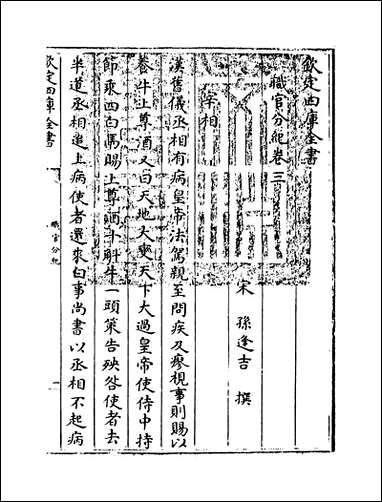 欽定四庫全書
職官分紀卷三
宋 孫逢吉 撰
宰相
漢舊儀丞相有病皇帝法駕親至問疾及瘳視事則賜以
養牛上尊酒又曰天地大變天下大過皇帝使侍中持
節乘四白馬賜上尊酒十斛牛一頭策告殃咎使者去
半道丞相追上病使者還來白事尚書以丞相不起病
欽定四庫全書
職官分紀
一